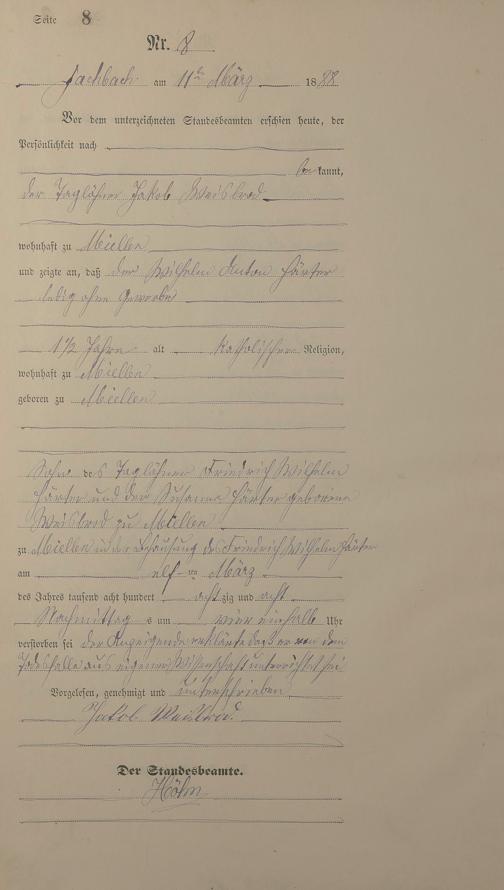 Seite 8
Nr. 8
Fachbach am 11ten März 1888
Vor dem unterzeichneten Standesbeamten erschien heute, der
Persönlichkeit nach
bekannt,
der Taglöhner Jakob Weisbrod
wohnhaft zu Miellen
und zeigte an, daß der Wilhelm Anton Härter
ledig ohne Gewerbe
1 1/2 Jahre alt katholischer Religion,
wohnhaft zu Miellen
geboren zu Miellen
Sohn des Taglöhners Friedrich Wilhelm
Härter und der Susanna Härter geborene
Weisbrod zu Miellen
zu Miellen in der Behausung des Friedrich Wilhelm Härter
am elften März
des Jahres tausend acht hundert achtzig und acht
Nachmittags um vier einhalb Uhr
verstorben sei der Anzeigende erklärte daß er von dem
Todesfalle aus eigener Wissenschaft unterrichtet sei
Vorgelesen, genehmigt und unterschrieben
Jakob Weisbrod
Der Standesbeamte.
Höhn